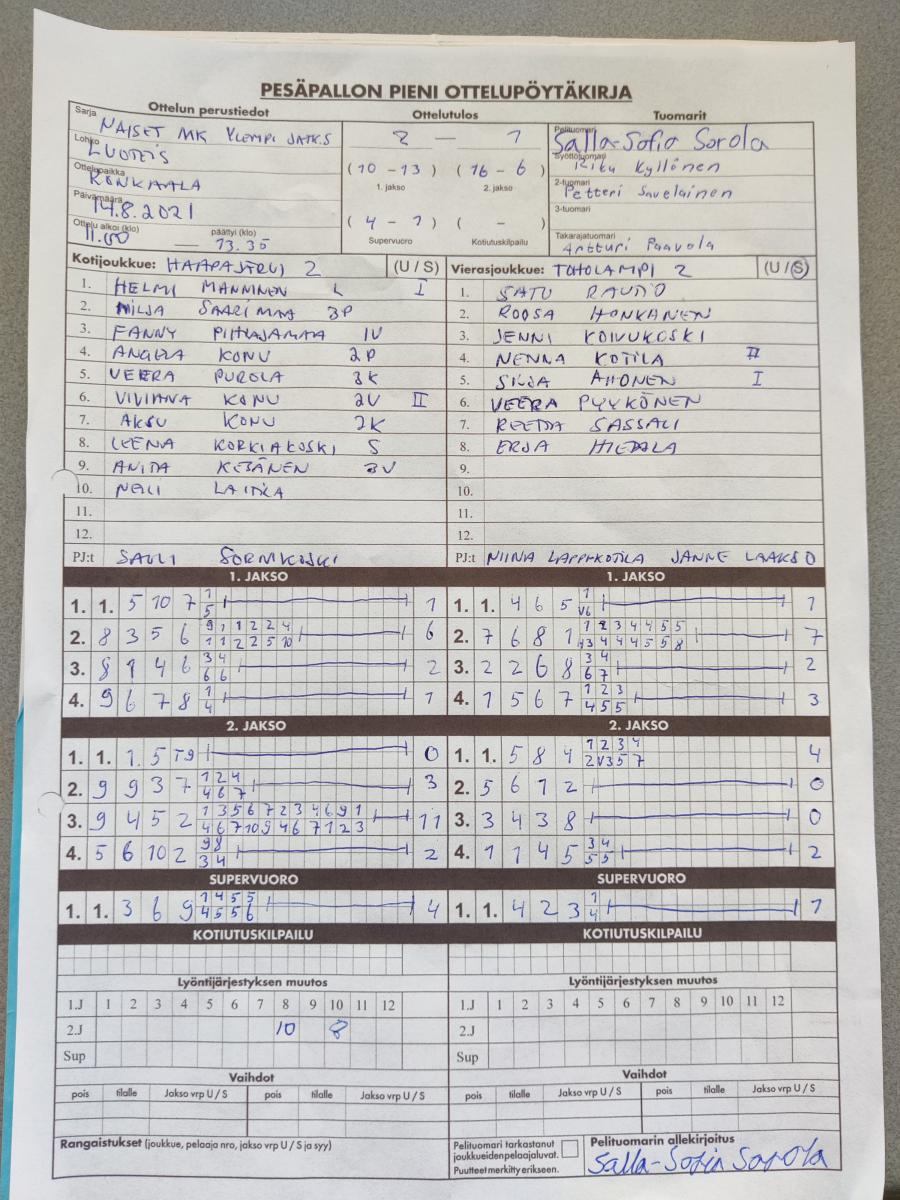 PESÄPALLON PIENI OTTELUPÖYTÄKIRJA
Ottelun perustiedot Ottelutulos Tuomarit
Sarja NAISET MK YLEMPI JATKS 2 — 1 Pelituomari Salla-Sofia Sorola
Lohko LUOTEIS Syöttötuomari Riku Kyllönen
Ottelupaikka RONKAALA (10 - 13) (16 - 6) 2-tuomari Petteri Savelainen
1. jakso 2. jakso
Päivämäärä 14.8.2021 3-tuomari
Ottelu alkoi (klo) 11.00 — päättyi (klo) 13.35 (4 - 1) ( - ) Takarajatuomari Artturi Paavola
Supervuoro Kotiutuskilpailu
Kotijoukkue: HAAPAJÄRVI 2 (U / S) Vierasjoukkue: TOHOLAMPI 2 (U / S)
1. HELMI MANNINEN L I 1. SATU RAUTIO
2. MILJA SAARIMAA 3P 2. ROOSA HONKANEN
3. FANNY PIHLAJAMAA IV 3. JENNI KOIVUKOSKI
4. ANGELA KONU 2P 4. NENNA KOTILA II
5. VEERA PUROLA 3K 5. SILJA AHONEN I
6. VIVIANA KONU 2V II 6. VEERA PYYKÖNEN
7. AKSU KONU 2K 7. REETTA SASSALI
8. LEENA KORKIAKOSKI S 8. ERJA HIETALA
9. ANITA KESÄNEN 3V 9.
10. NELLI LAITILA 10.
11. 11.
12. 12.
PJ:t SAULI SORMIKOSKI PJ:t NIINA LAPPI-KOTILA JANNE LAAKSO
1. JAKSO 1. JAKSO
1 1
1. 1. 5 10 7 5 1 1. 1. 4 6 5 V6 1
9 1 1 2 2 4 1 2 3 4 4 5 5
2. 8 3 5 6 1 1 2 2 5 10 6 2. 7 6 8 1 3 4 4 4 5 5 8 7
3 4 3 4
3. 8 1 4 6 6 6 2 3. 2 2 6 8 6 7 2
1 1 2 3
4. 9 6 7 8 4 1 4. 1 5 6 7 4 5 5 3
2. JAKSO 2. JAKSO
1 2 3 4
1. 1. 1. 5 T9 0 1. 1. 5 8 4 2 V3 5 7 4
1 2 4
2. 9 9 3 7 4 6 7 3 2. 5 6 1 2 0
1 3 5 6 7 2 3 4 6 9 1
3. 9 4 5 2 4 6 7 10 9 4 6 7 1 2 3 11 3. 3 4 3 8 0
9 8 3 4
4. 5 6 10 2 3 4 2 4. 1 1 4 5 5 5 2
SUPERVUORO SUPERVUORO
1 4 5 5 1
1. 1. 3 6 9 4 5 5 6 4 1. 1. 4 2 3 4 1
KOTIUTUSKILPAILU KOTIUTUSKILPAILU
Lyöntijärjestyksen muutos Lyöntijärjestyksen muutos
1.J 1 2 3 4 5 6 7 8 9 10 11 12 1.J 1 2 3 4 5 6 7 8 9 10 11 12
2.J 10 8 2.J
Sup Sup
Vaihdot Vaihdot
pois tilalle Jakso vrp U / S pois tilalle Jakso vrp U / S pois tilalle Jakso vrp U / S pois tilalle Jakso vrp U / S
Rangaistukset (joukkue, pelaaja nro, jakso vrp U / S ja syy) Pelituomari tarkastanut Pelituomarin allekirjoitus
joukkueidenpelaajaluvat. Salla-Sofia Sorola
Puutteet merkitty erikseen.